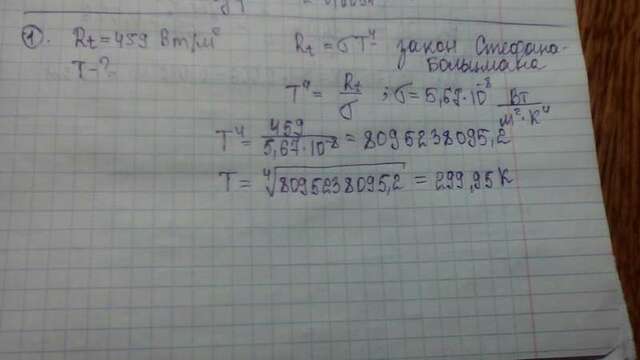 1. Rt = 459 Вт/м² Rt = σT⁴ закон Стефана-
Больцмана
T - ?
T⁴ = Rt/σ ; σ = 5,67·10⁻⁸ Вт/м²·К⁴
T⁴ = 459/5,67·10⁻⁸ = 8095238095,2
T = ⁴√8095238095,2 = 299,95 К